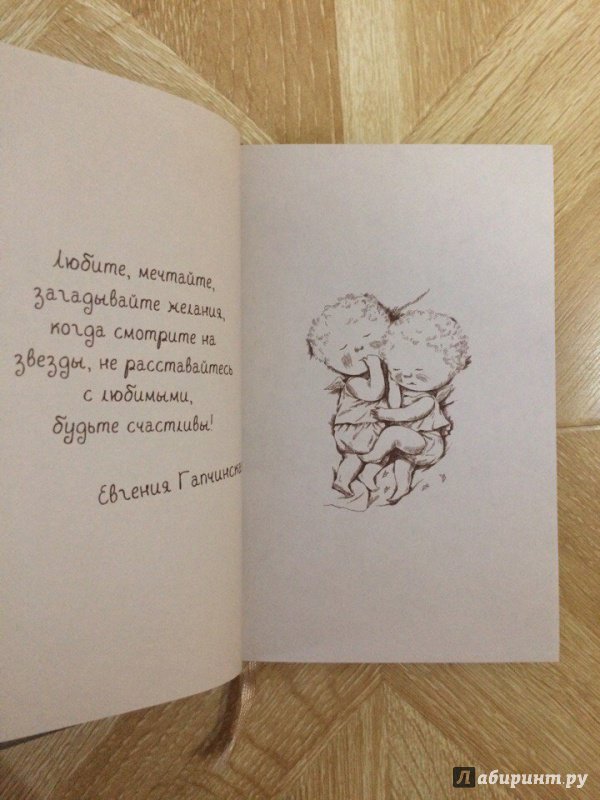 Любите, мечтайте,
загадывайте желания,
когда смотрите на
звезды, не расставайтесь
с любимыми,
будьте счастливы!
Евгения Гапчинска
Лабиринт.ру